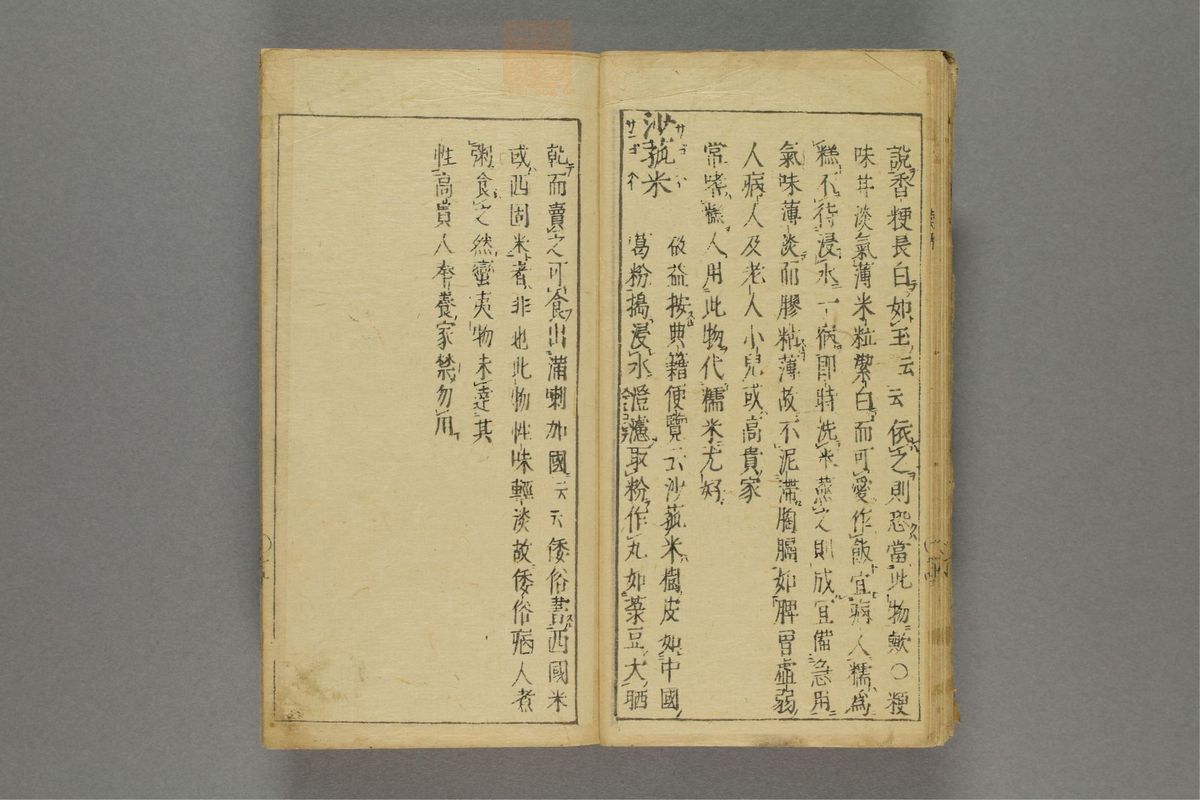 說香粳長白如玉云云依之則恐當此物歟〇粳
味甘淡氣薄米粒潔白而可愛作飯宜病人糯爲
糕不待浸水一宿即時洗米蒸之則成宜備急用
氣味薄淡而膠粘薄故不泥滯胸膈如脾胃虛弱
人病人及老人小兒或高貴家
常嗜糕人用此物代糯米尤好
沙菰米 サゴ
啟益按典籍便覽云沙菰米樹皮如中國
葛粉搗浸水澄濾取粉作丸如菉豆大晒
乾而賣之可食出滿喇加國云云倭俗書西國米
或西固米者非也此物性味輕淡故倭俗病人煮
粥食之然蠻夷物未達其
性高貴人奉養家禁勿用